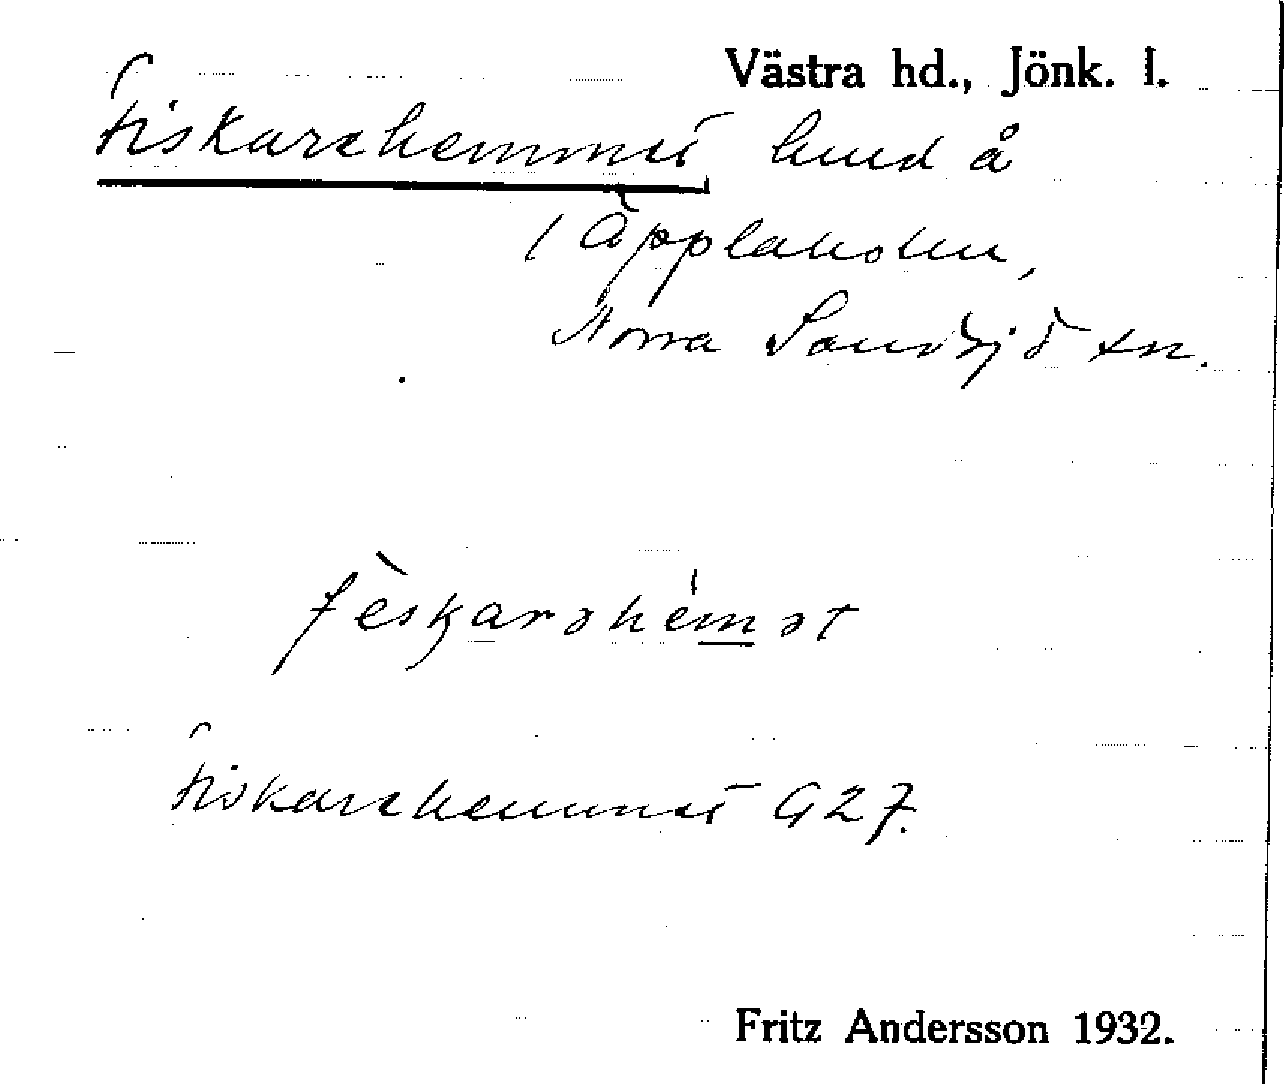 Västra hd., Jönk. l.
Fiskarehemmet lund å
1 Äpplaholm,
Norra Sandsjö sn.
fèskarəhémət
Fiskarehemmet G27.
Fritz Andersson 1932.